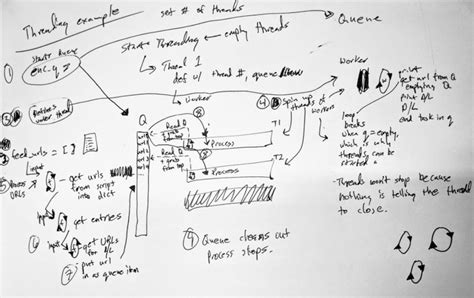 Threading example
set # of threads
Queue
Starts Queue
enc-q =
1
Start Threading ← empty threads
Thread 1
def w/ thread #, queue
Worker
Defines worker thread
feed_urls = [ ]
Q
Read Q
Process
Read Q
Process
T1
T2
4
Spin up
threads of
worker
Worker
get url from Q
print D/L
D/L
end task in q
loop
breaks
when q = empty,
which is why
threads can be
started
- Threads won't stop because
nothing is telling the thread
to close.
input
- get urls
from script
into dict
- get entries
6
input
- get URLs
for D/L
7
put url
in as queue item
9
Queue cleans out
process steps.